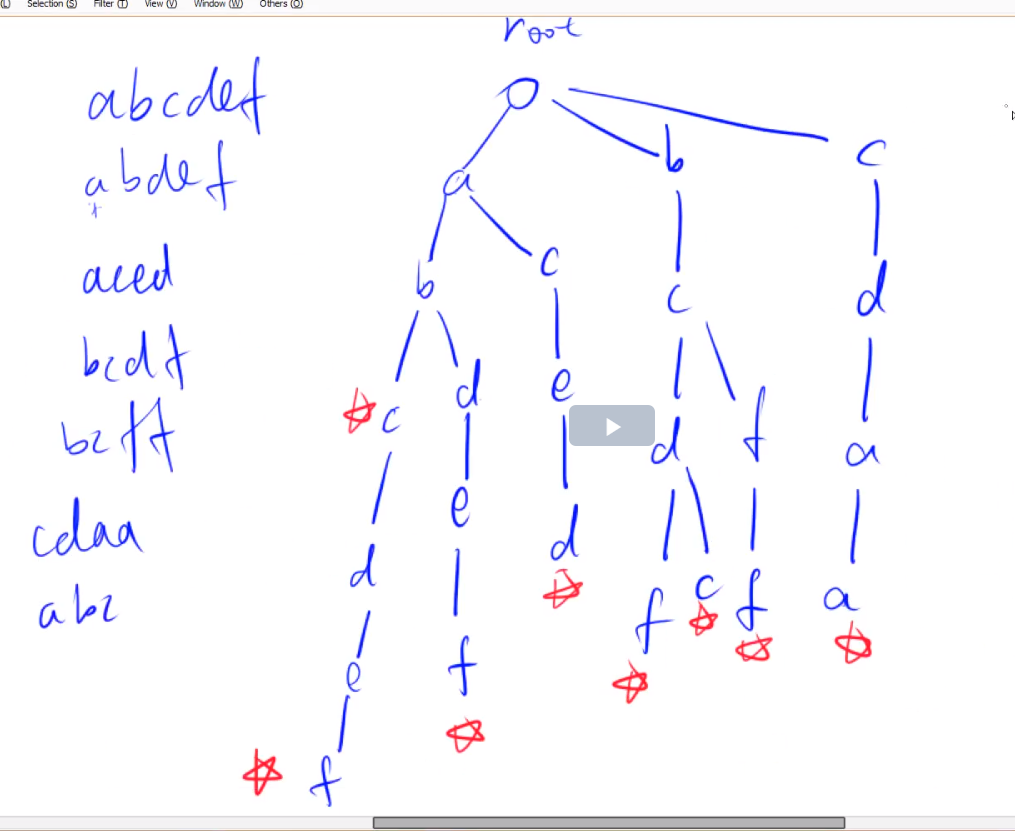 (L) Selection (S) Filter (T) View (V) Window (W) Others (O)
root
abcdef
abdef
aced
bcdf
bcff
cdaa
abc
a b c
b c c d
c d e d f a
d e d f c f a
e f
f